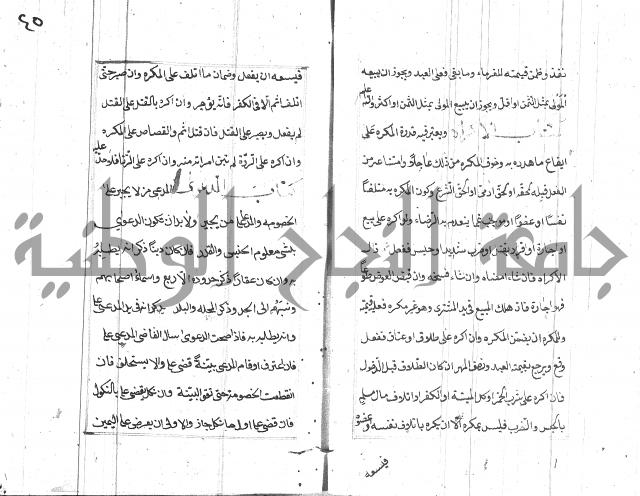 نفذ وضمن قيمته للغرماء وما بقي فعلى العبد ويجوز ان يبيعه
المولى بمثل الثمن او اقل ويجوز ان يبيع المولى بمثل الثمن او اكثر
كتاب الاكراه ويعتبر فيه قدرة المكره على
ايقاع ما هدده به وخوف المكره من ذلك عاجلا وامتناعه من
الفعل قبله لحقه او لحق ادمي او لحق الشرع وكون المكره به متلفا
نفسا او عضوا او موجبا غما ينعدم به الرضاء ولو اكره على بيع
او اجارة او اقرار بقتل او ضرب شديد او حبس ففعل ثم زال
الاكراه فان شاء امضاه وان شاء فسخه وان قبض العوض طوعا
فهو اجازة فان هلك المبيع في يد المشتري وهو غير مكره فعليه قيمته
وللمكره ان يضمن المكره وان اكره على طلاق او عتاق ففعل
وقع ويرجع بقيمة العبد ونصف المهر ان كان الطلاق قبل الدخول
فان اكره على شرب الخمر واكل الميتة او الكفر او اتلاف مال مسلم
بالحبس او الضرب فليس بمكره الا ان يكره باتلاف نفسه او عضوه
فيسعه
٤٥
فيسعه ان يفعل وضمان ما اتلف على المكره وان صبر حتى
اتلف اثم الا في الكفر فانه يؤجر وان اكره بالقتل على القتل
لم يفعل ويصبر على القتل فان قتل اثم والقصاص على المكره
وان اكره على الردة لم تبن امراته منه وان اكره على الزنا فلا حد عليه
كتاب الدعوى المدعي من لا يجبر على
الخصومة والمدعى عليه من يجبر ولا بد ان تكون الدعوى
بشيء معلوم الجنس والقدر فان كان دينا ذكر انه يطلبه
به وان كان عقارا ذكر حدوده الاربع واسماء اصحابهم
ونسبهم الى الجد وذكر المحلة والبلد ثم يذكر انه في يد المدعى عليه
وانه يطلبه به فاذا صحت الدعوى سال القاضي المدعى عليه
فان اعترف او قام المدعي بينة قضي عليه والا يستحلف فان
انقطعت الخصومة حتى تقوم البينة وان نكل يقضي عليه بالنكول
فان قضى عليه اول ما نكل جاز والاولى ان يعرض عليه اليمين
جامعة النجاح الوطنية